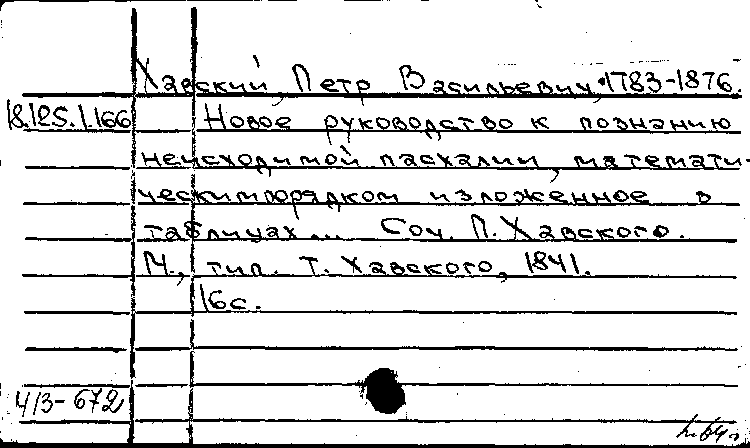 Хавский, Петр Васильевич, 1783-1876.
18.125.1.166 Новое руководство к познанию
неисходимой пасхалии, математи-
ческимпорядком изложенное в
таблицах... Соч. П. Хавского.
М., тип. Т. Хавского, 1841.
16с.
413-672